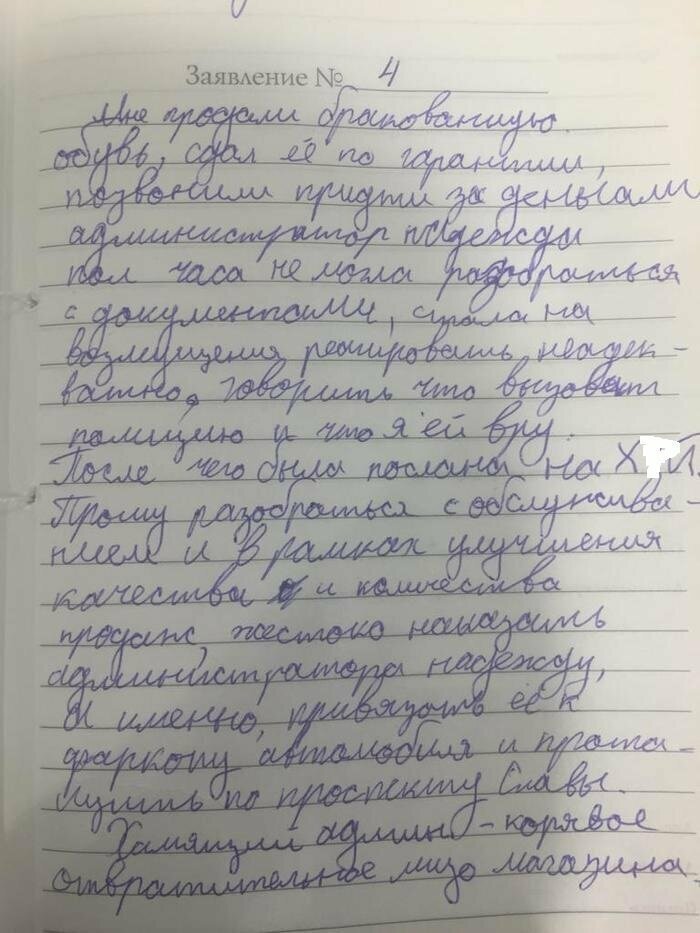 Заявление № 4
Мне продали бракованную
обувь, сдал её по гарантии,
позвонили придти за деньгами
администратор надежда
пол часа не могла разобраться
с документами, стала на
возмущения реагировать неадек-
ватно, говорить что вызовет
полицию и что я ей вру.
После чего была послана на Х Й.
Прошу разобраться с обслужива-
нием и в рамках улучшения
качества и количества
продаж, жестоко наказать
администратора надежду,
А именно, привязать её к
фаркопу автомобиля и прота-
щить по проспекту Славы.
Хамящий админ - корявое
отвратительное лицо магазина.